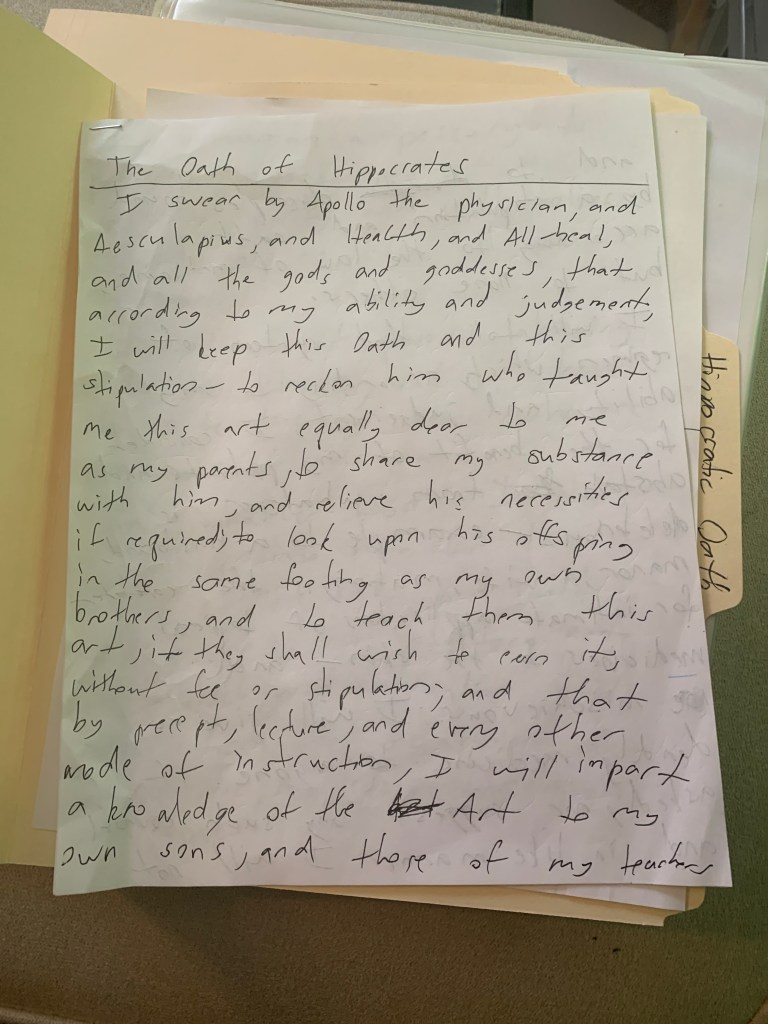 The Oath of Hippocrates
I swear by Apollo the physician, and
Aesculapius, and Health, and All-heal,
and all the gods and goddesses, that
according to my ability and judgement,
I will keep this Oath and this
stipulation – to reckon him who taught
me this art equally dear to me
as my parents, to share my substance
with him, and relieve his necessities
if required; to look upon his offspring
in the same footing as my own
brothers, and to teach them this
art, if they shall wish to earn it,
without fee or stipulation; and that
by precept, lecture, and every other
mode of instruction, I will impart
a knowledge of the Art to my
own sons, and those of my teachers
Hippocratic Oath